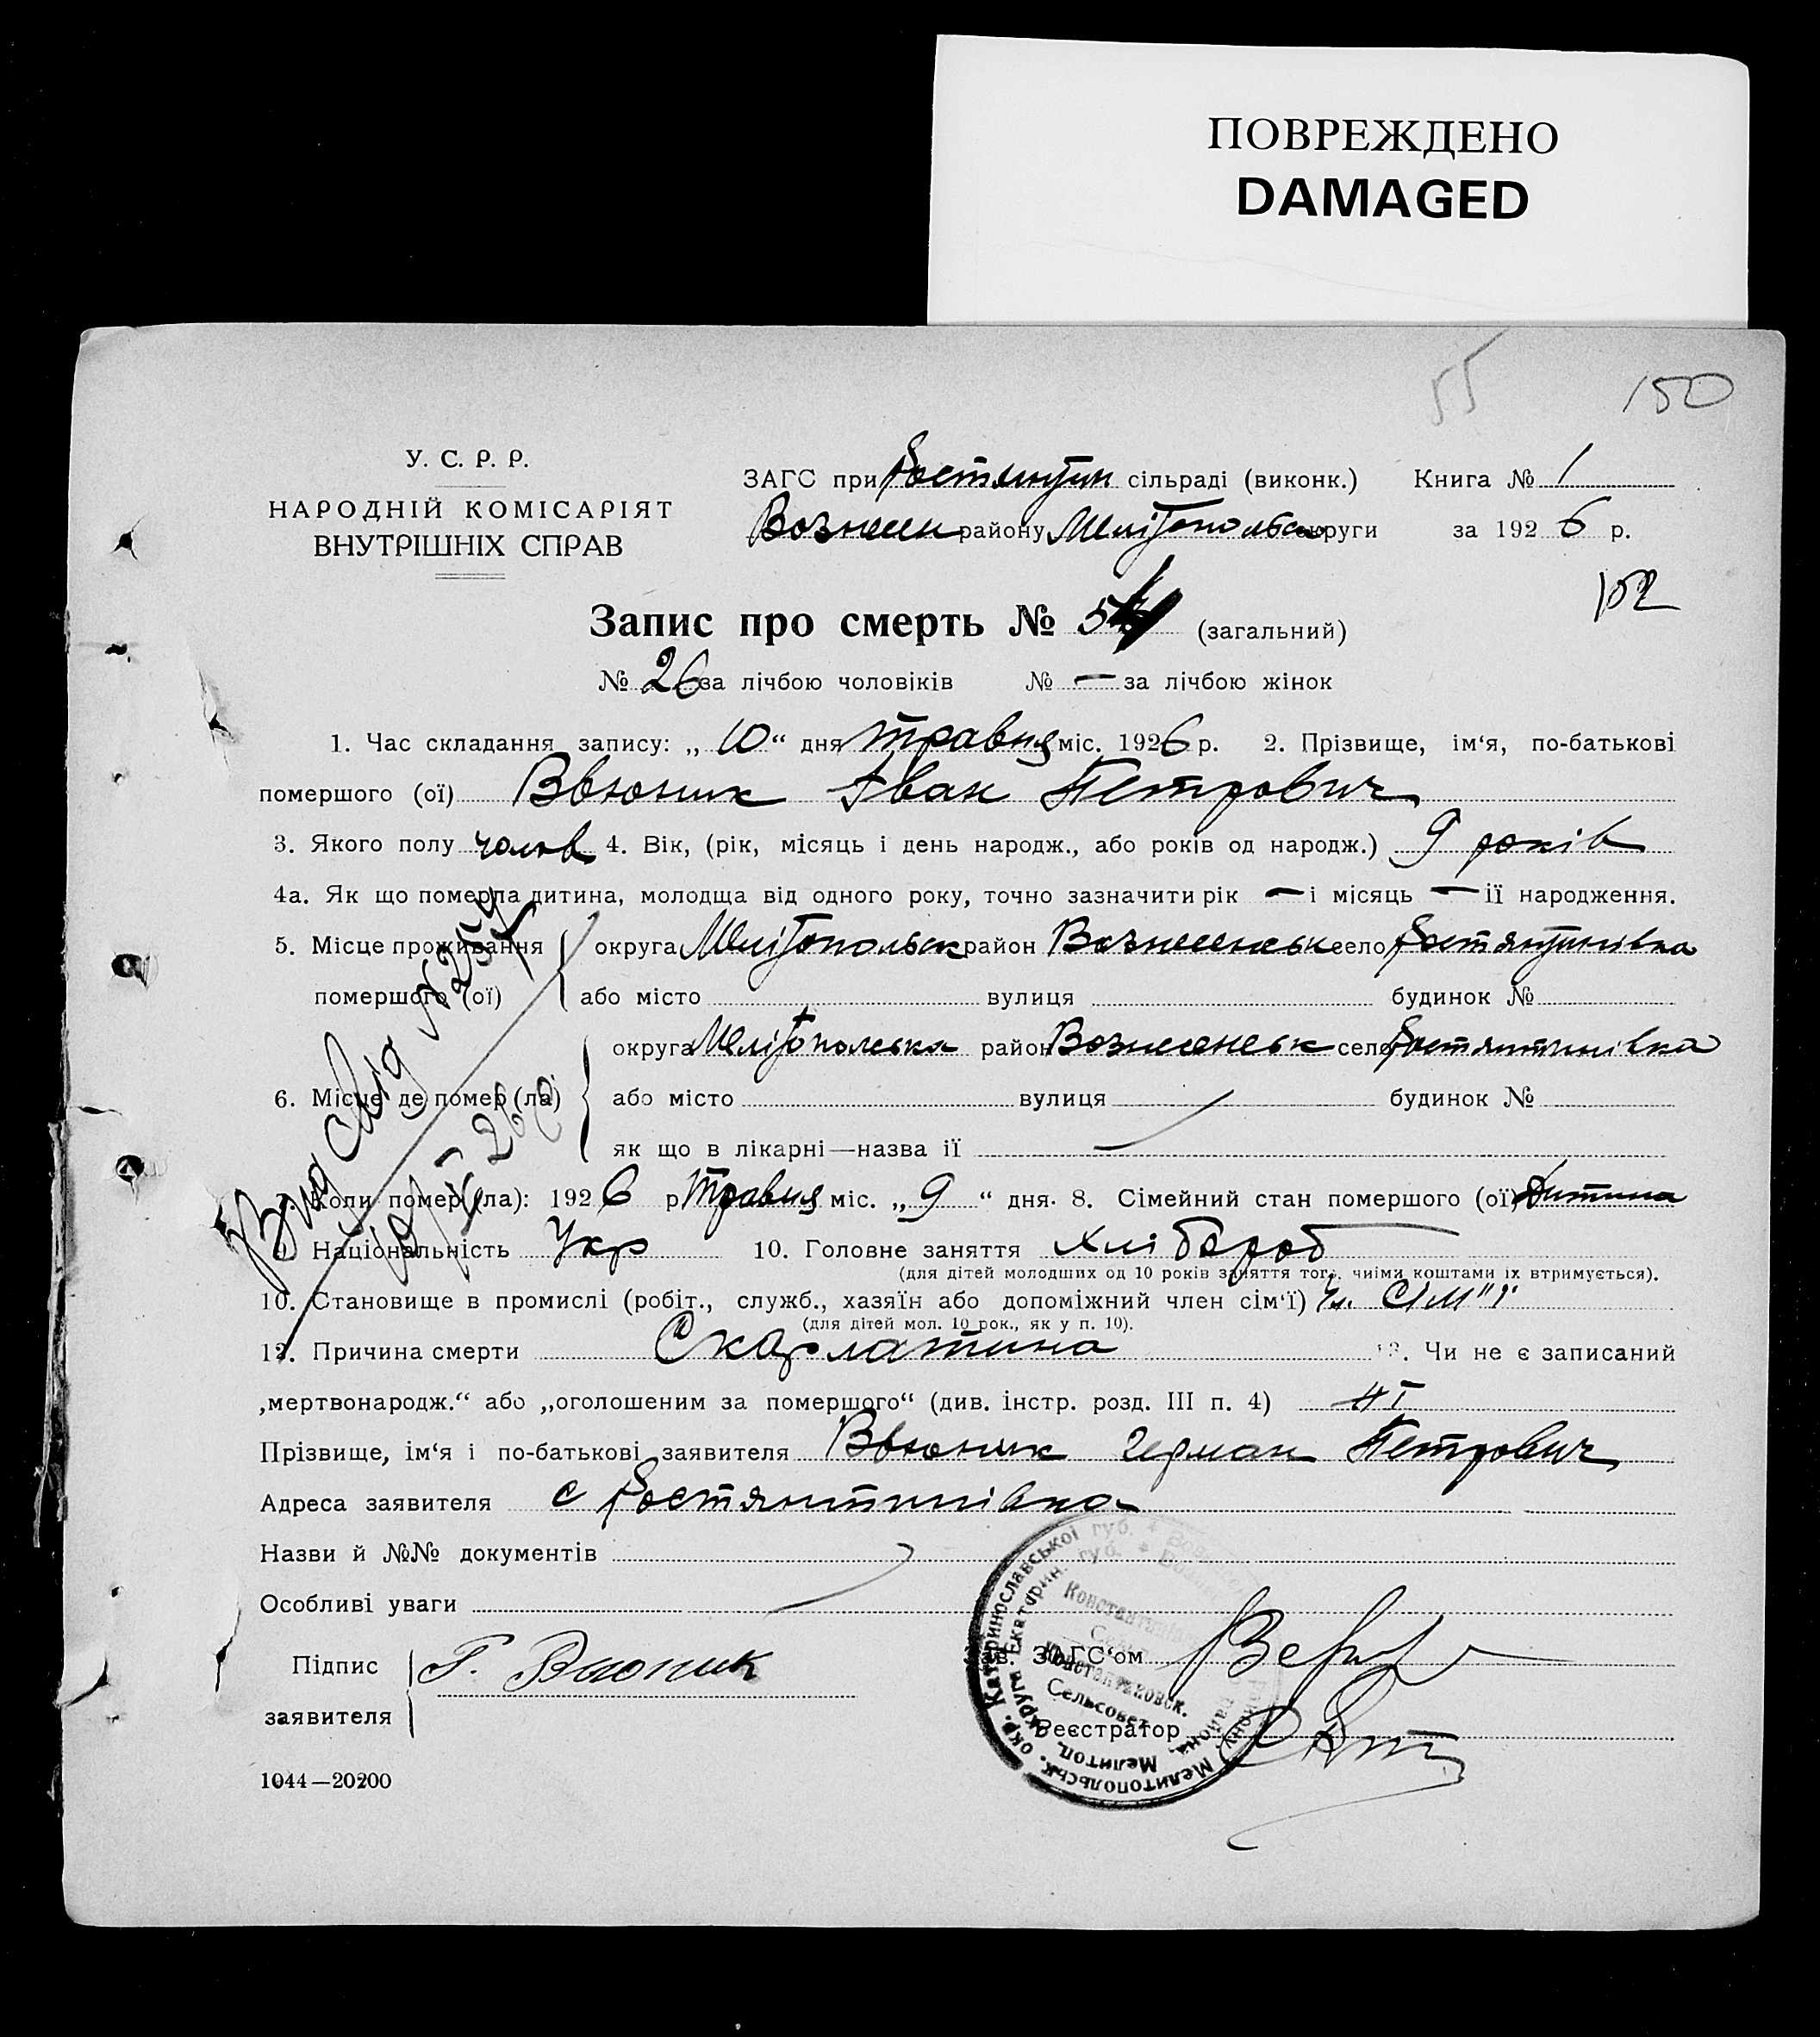 ПОВРЕЖДЕНО
DAMAGED
55 150
У. С. Р. Р.
НАРОДНІЙ КОМІСАРІЯТ
ВНУТРІШНІХ СПРАВ
ЗАГС при Костянтин сільраді (виконк.) Книга № 1
Вознесен району Мелітопольськ округи за 1926 р.
152
Запис про смерть № 54 (загальний)
№ 26 за лічбою чоловіків № — за лічбою жінок
1. Час складання запису: „10“ дня травня міс. 1926 р. 2. Прізвище, ім‘я, по-батькові
помершого (ої) Ввюник Іван Петрович
3. Якого полу чолов 4. Вік, (рік, місяць і день народж., або років од народж.) 9 років
4а. Як що померла дитина, молодща від одного року, точно зазначити рік — і місяць — її народження.
5. Місце проживання округа Мелітопольськ район Вознесенськ село Костянтинівка
помершого (ої) або місто вулиця будинок №
округа Мелітопольська район Вознесенськ село Костянтинівка
6. Місце де помер (ла) або місто вулиця будинок №
як що в лікарні—назва її
Коли помер (ла): 1926 р травня міс. „9“ дня. 8. Сімейний стан помершого (ої) Дитина
9. Національність Укр 10. Головне заняття Хлібороб
(для дітей молодших од 10 років заняття того, чиїми коштами їх втримується).
10. Становище в промислі (робіт., служб., хазяїн або допоміжний член сім‘ї) Чл. сім"ї
(для дітей мол. 10 рок., як у п. 10).
12. Причина смерти Скарлатина 13. Чи не є записаний
„мертвонародж.“ або „оголошеним за помершого“ (див. інстр. розд. III п. 4) Ні
Прізвище, ім‘я і по-батькові заявителя Ввюник Герман Петрович
Адреса заявителя с Костянтинівка
Назви й №№ документів
Особливі уваги
Підпис заявителя Г. Вьюник
Зав. ЗАГС‘ом
Реєстратор
окр. Катеринославської губ. * Мелитопольськ.
Мелитоп. округи Екатерин. губ. *
Константиновск.
Сельсовет
1044—20200